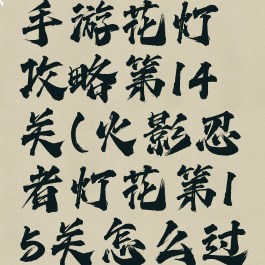 手游花灯
攻略第14
关(火影忍
者灯花第1
5关怎么过